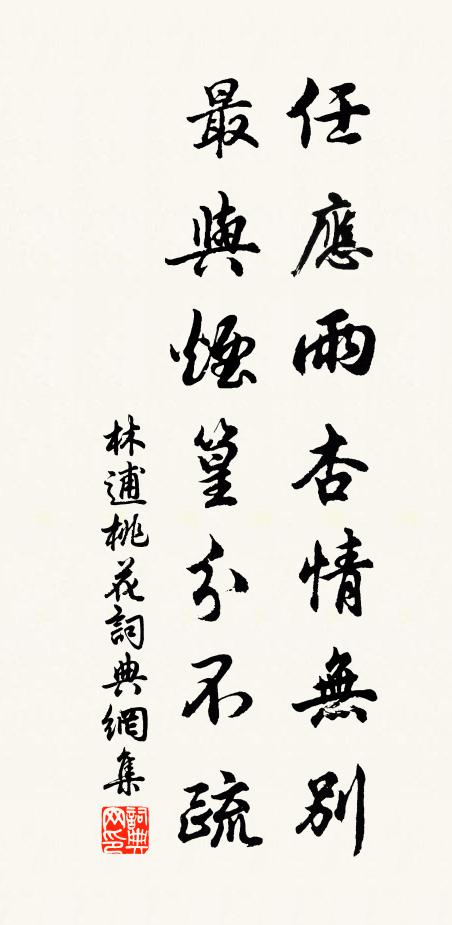 任應雨杏情無別
最與煙篁分不疏
林逋桃花詞典網集
詞典網印